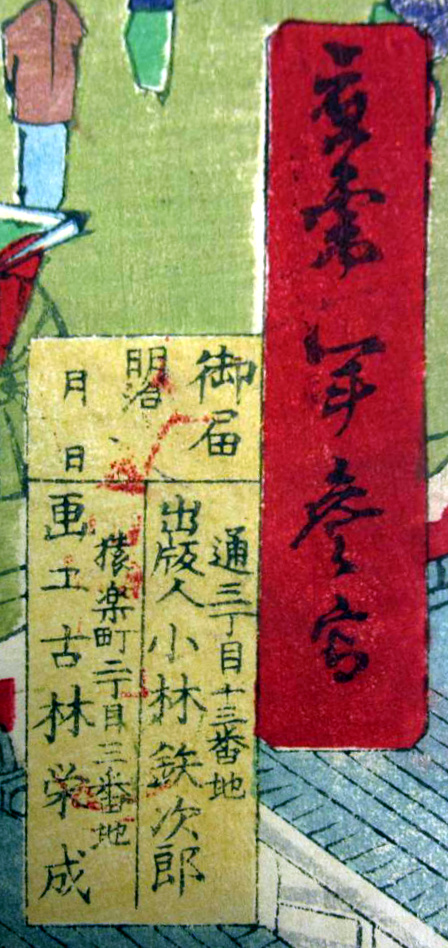 御届
明治
月 日
通三丁目十三番地
出版人 小林鉄次郎
猿楽町二丁目三番地
画工 古林栄成